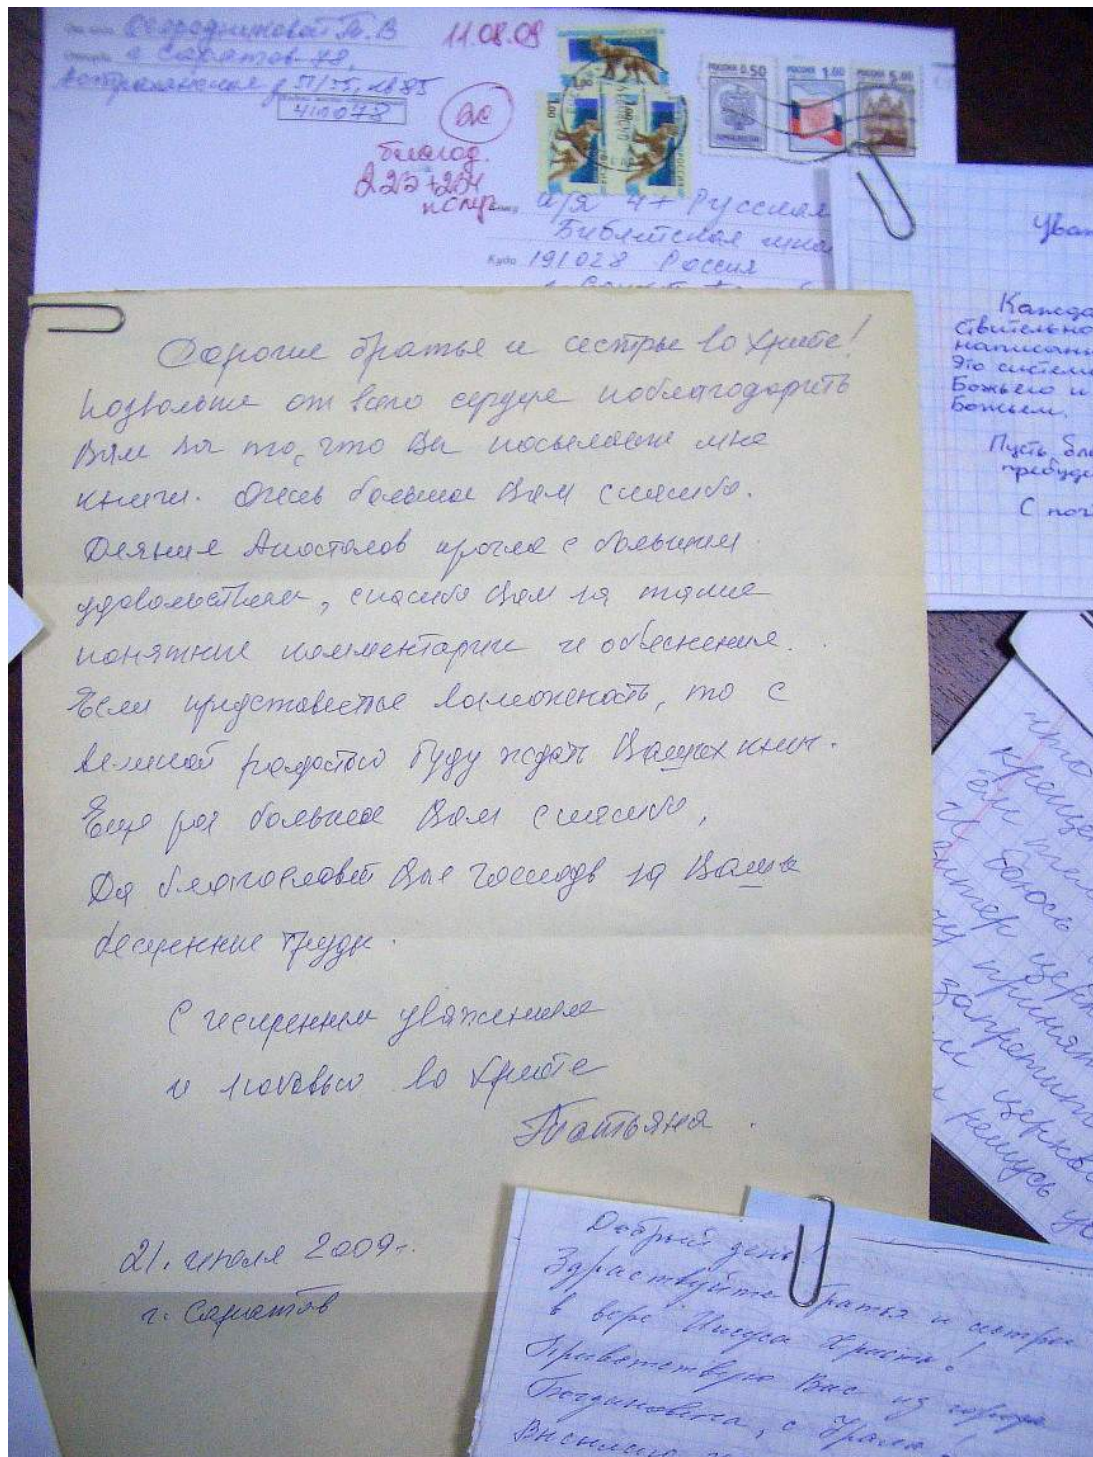 г. Саратов-78,
410078
11.08.09
благод.
РОССИЯ
1.00
1.00
1.00
РОССИЯ 0.50
РОССИЯ 1.00
РОССИЯ 5.00
а/я 47 Русская
Библейская
Куда 191028 Россия
Дорогие братья и сестры во Христе!
Позвольте от всего сердца поблагодарить
Вам за то, что Вы посылаете мне
книги. Очень большое Вам спасибо.
Деяния Апостолов прочла с большим
удовольствием, спасибо Вам за такие
понятные комментарии и объеснения.
Если представется возможность, то с
великой радостью буду ждать Ваших книг.
Еще раз большое Вам спасибо,
Да благословет Вас Господь за Ваши
бесценные труды.
С искренним уважением
и любовью во Христе
Татьяна.
21. июля 2009г.
г. Саратов
Уваж
Каждо
ствительно
написанн
Это система
Божьего и
Божьем.
Пусть бла
пребуде
С поч
что
креще
боюсь
церк
принят
запретит
церкв
Добрый день!
Здраствуйте братья и сестры
в вере Иисуса Христа!
Приветствую Вас из города
Богдановича, с Урала!